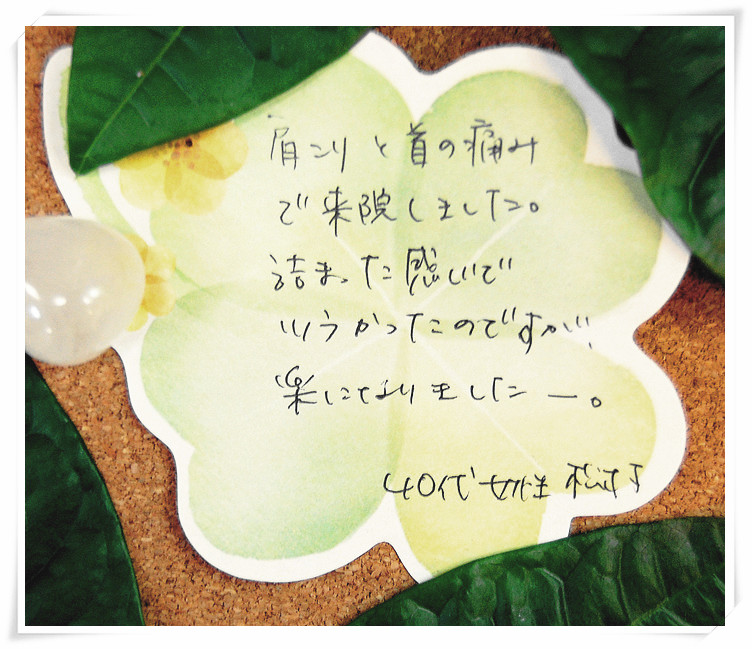 肩こりと首の痛み
で来院しました。
詰まった感じで
ツラかったのですが、
楽になりましたー。
40代女性